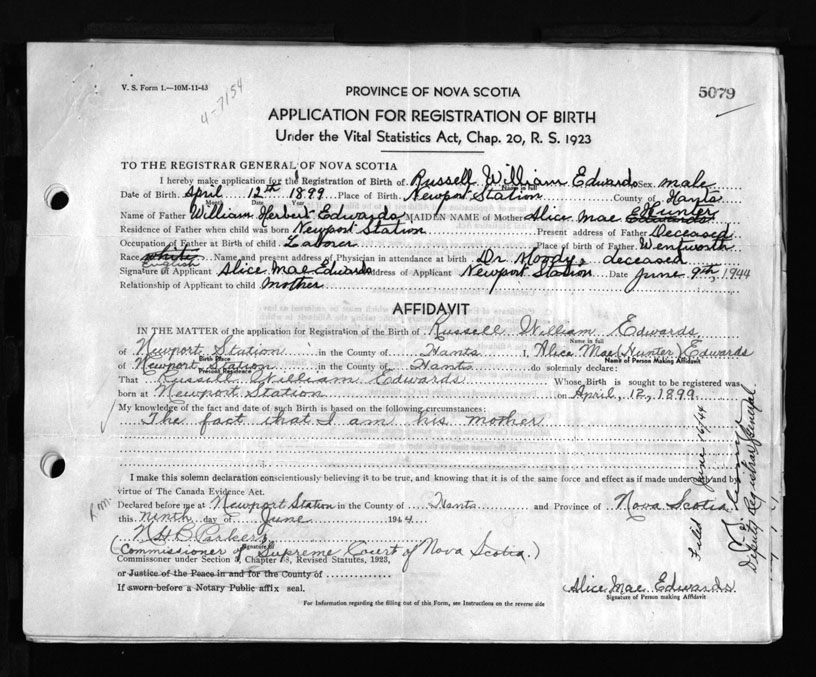 V. S. Form 1.—10M-11-43
4-7154
PROVINCE OF NOVA SCOTIA
5079
APPLICATION FOR REGISTRATION OF BIRTH
Under the Vital Statistics Act, Chap. 20, R. S. 1923
TO THE REGISTRAR GENERAL OF NOVA SCOTIA
I hereby make application for the Registration of Birth of Russell William Edwards Sex male
Name in full
Date of Birth April 12th 1899 Place of Birth Newport Station County of Hants
Month Date Year
Name of Father William Herbert Edwards MAIDEN NAME of Mother Alice Mae Edwards Hunter
Residence of Father when child was born Newport Station Present address of Father Deceased
Occupation of Father at Birth of child Laborer Place of birth of Father Wentworth
Race white Name and present address of Physician in attendance at birth Dr Moody, deceased
English
Signature of Applicant Alice Mae Edwards Address of Applicant Newport Station Date June 9th, 1944
Relationship of Applicant to child mother
AFFIDAVIT
IN THE MATTER of the application for Registration of the Birth of Russell William Edwards
Name in full
of Newport Station in the County of Hants I, Alice Mae (Hunter) Edwards
Birth Place Name of Person Making Affidavit
of Newport Station in the County of Hants do solemnly declare:
Present Residence
That Russell William Edwards Whose Birth is sought to be registered was
born at Newport Station on April, 12, 1899
My knowledge of the fact and date of such Birth is based on the following circumstances:
The fact that I am his mother
I make this solemn declaration conscientiously believing it to be true, and knowing that it is of the same force and effect as if made under oath and by
virtue of The Canada Evidence Act.
Declared before me at Newport Station in the County of Hants and Province of Nova Scotia
this Ninth day of June 1944
N H B Parker
Signature of
(Commissioner of Supreme Court of Nova Scotia.)
Commissioner under Section 3, Chapter 38, Revised Statutes, 1923,
or Justice of the Peace in and for the County of
If sworn before a Notary Public affix seal.
Alice Mae Edwards
Signature of Person making Affidavit
For Information regarding the filling out of this Form, see Instructions on the reverse side
Filed June 16/44
Deputy Registrar General